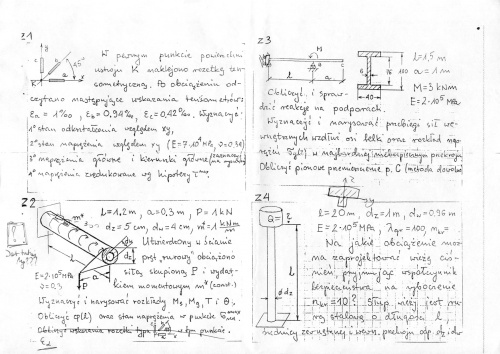 Z1
y
c
b
45°
a
x
W pewnym punkcie powierzchni
ustroju K naklejono rozetkę ten-
sometryczną. Po obciążeniu od-
czytano następujące wskazania tensometrów:
εa = 1‰, εb = 0,94‰, εc = 0,42‰. Wyznaczyć:
1° stan odkształcenia względem xy,
2° stan naprężenia względem xy (E = 7·10⁴ MPa, ν = 0,34)
3° naprężenia główne i kierunki główne (zaznaczyć na rysunku)
4° naprężenia zredukowane wg hipotezy τmax.
Z2
L = 1,2 m, a = 0,3 m, P = 1 kN
dz = 5 cm, dw = 4 cm, m° = 1 kNm/m
Utwierdzony w ścianie
pręt "rurowy" obciążono
siłą skupioną P i wydat-
kiem momentowym m° (const.)
L
m°
dw
dz
a
P
E = 2·10⁵ MPa
ν = 0,3
?
Wyznaczyć i narysować rozkłady Ms, Mg, T i θ.
Obliczyć φ(L) oraz stan naprężenia w punkcie
Obliczyć wskazania rozetki typu w tym punkcie.
Z3
M
l
a
6
76
100
40
l = 1,5 m
a = 1 m
M = 3 kNm
E = 2·10⁵ MPa
Obliczyć i spraw-
dzić reakcje na podporach.
Wyznaczyć i narysować przebiegi sił we-
wnętrznych wzdłuż osi belki oraz rozkład naprę-
żeń w najbardziej niebezpiecznym przekroju
Obliczyć pionowe przemieszczenie p. C (metoda dowolna)
Z4
Q = ?
L
ø dz
l = 20 m, dz = 1 m, dw = 0,96 m
E = 2·10⁵ MPa, λgr = 100, nw =
Na jakie obciążenie moż-
na zaprojektować wieżę ciś-
nień, przyjmując współczynnik
bezpieczeństwa na wyboczenie
nw = 10? Słup wieży jest ru-
rą stalową o długości l
średnicy zewnętrznej i wewn. przekroju odp. dz i dw